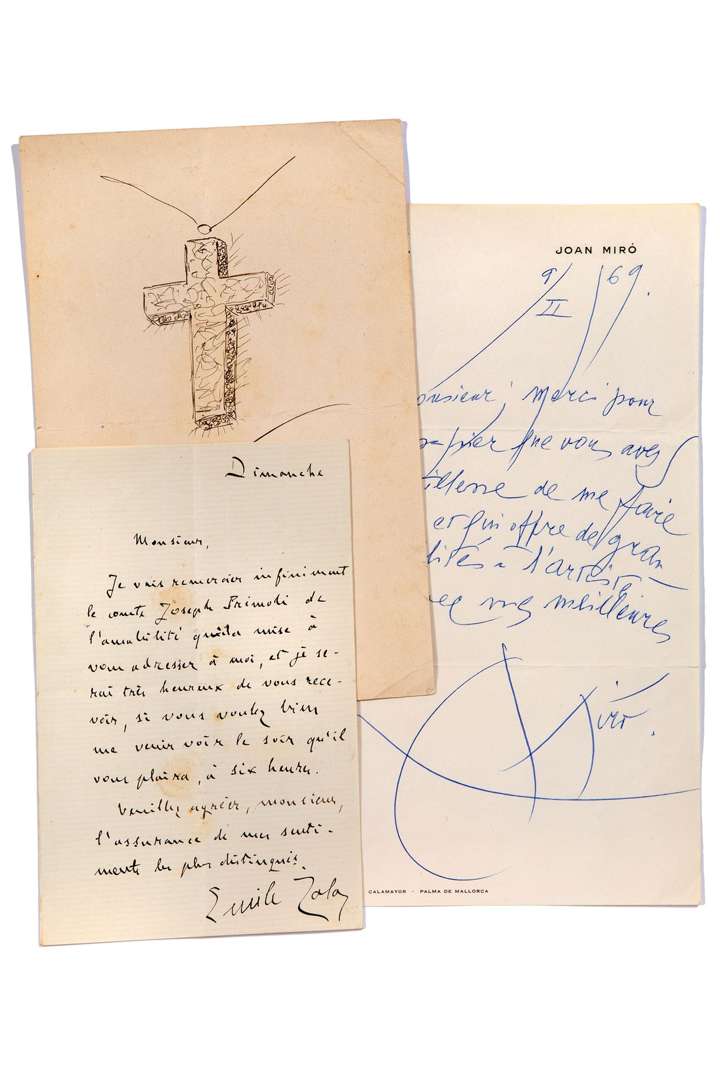 Dimanche
Monsieur,
Je vais remercier infiniment
le comte Joseph Primoli de
l'amabilité qu'il a mise à
vous adresser à moi, et je se-
rai très heureux de vous rece-
voir, si vous voulez bien
me venir voir le soir qu'il
vous plaira, à six heures.
Veuillez agréer, monsieur,
l'assurance de mes senti-
ments les plus distingués.
Emile Zola
JOAN MIRÓ
9/II/69.
onsieur, merci pour
papier que vous avez
tillesse de me faire
et qui offre de gran
lités à l'artiste
ec mes meilleures
Miró.
CALAMAYOR - PALMA DE MALLORCA